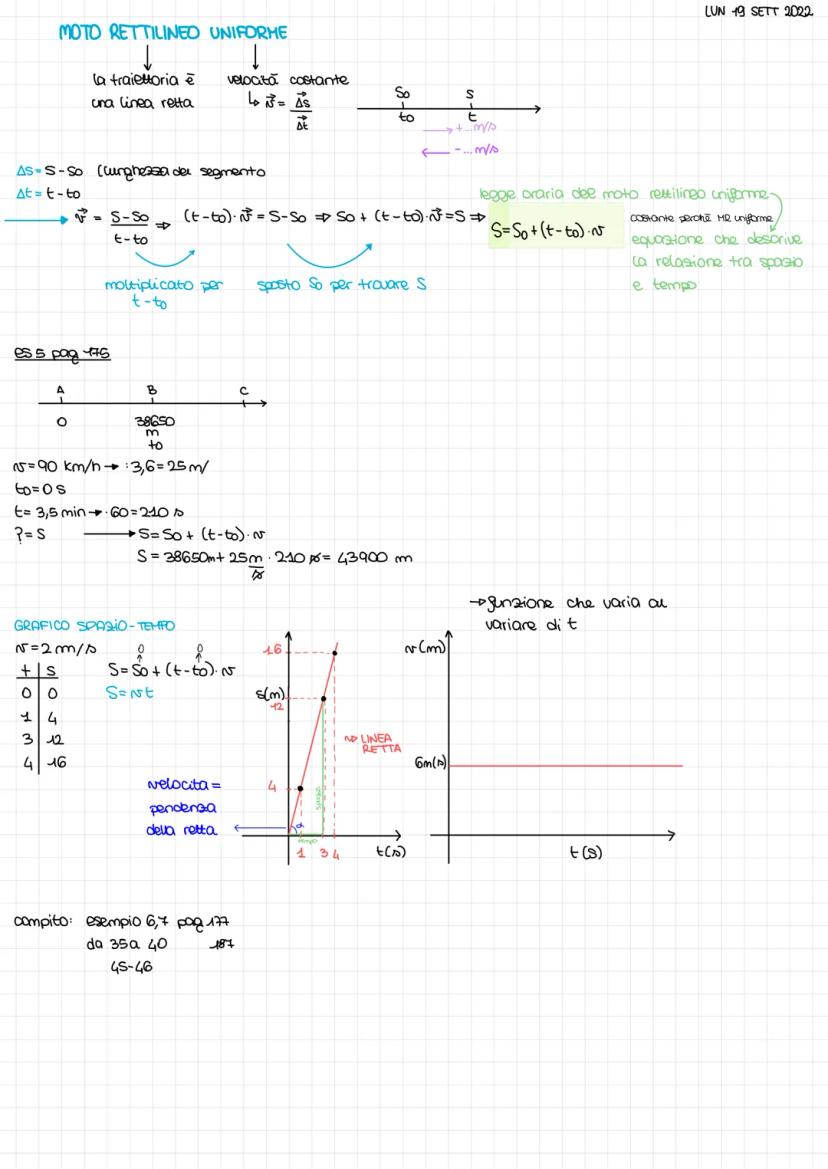 LUN 19 SETT 2022
MOTO RETTILINEO UNIFORME
la traiettoria è
una linea retta
velocità costante
↳ v⃗ = Δs⃗ / Δt⃗
So s
to t
→ +...m/s
← -...m/s
Δs = S-So (lunghezza del segmento
Δt = t-to
→ v⃗ = S-So / t-to ⇒ (t-to)·v⃗ = S-So ⇒ So + (t-to)·v⃗ = S ⇒ S=So+(t-to)·v
moltiplicato per
t-to
sposto So per trovare S
legge oraria del moto rettilineo uniforme
costante perchè MR uniforme
equazione che descrive
la relazione tra spazio
e tempo
es 5 pag 175
A B C
0 38650
m
to
v=90 km/h → :3,6=25m/
to=0 s
t= 3,5 min → ·60=210 s
?=S → S=So + (t-to)·v
S = 38650m + 25m/s · 210 s = 43900 m
GRAFICO SPAZIO-TEMPO
v=2 m/s
0 0
t s
S=So+(t-to)·v
0 0
S=vt
1 4
3 12
4 16
velocita=
pendenza
della retta
16
s(m)
12
4
LINEA
RETTA
spazio
α
tempo
1 3 4
t(s)
→funzione che varia al
variare di t
v(m)
6m(s)
t(s)
compito: esempio 6,7 pag 177
da 35 a 40 187
45-46